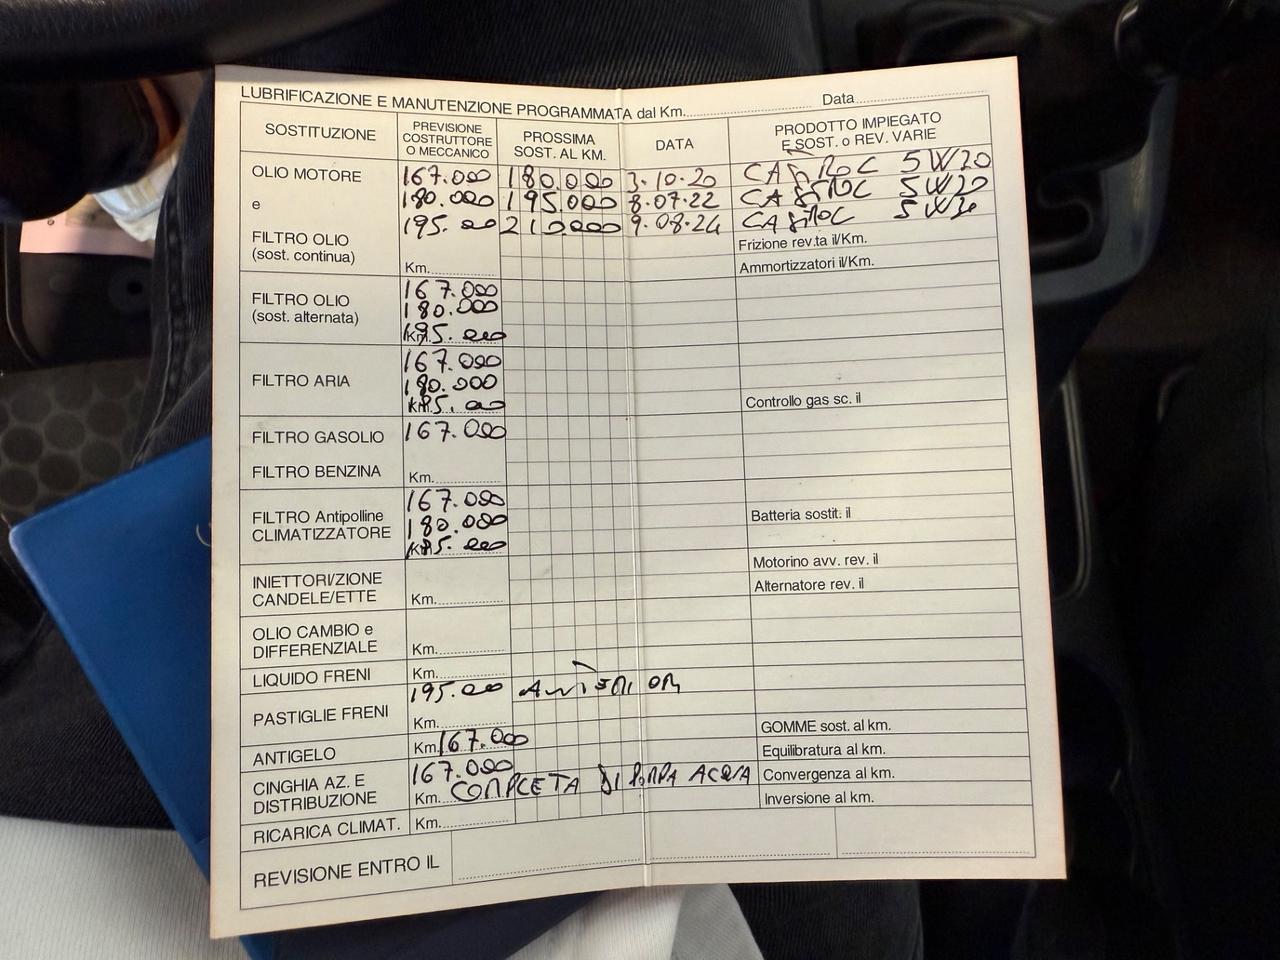 LUBRIFICAZIONE E MANUTENZIONE PROGRAMMATA dal Km............ Data............
SOSTITUZIONE
PREVISIONE COSTRUTTORE O MECCANICO
PROSSIMA SOST. AL KM.
DATA
PRODOTTO IMPIEGATO E SOST. o REV. VARIE
OLIO MOTORE 167.000 180.000 3.10.20 5W20
e 180.000 195000 8.07.22 5W20
195.000 210.000 9.08.24
FILTRO OLIO Frizione rev.ta il/Km.
(sost. continua) Km. Ammortizzatori il/Km.
167.000
FILTRO OLIO 180.000
(sost. alternata) Km. 195.000
167.000
FILTRO ARIA 180.000
Km. 195.000 Controllo gas sc. il
FILTRO GASOLIO 167.000
FILTRO BENZINA Km.
167.000
FILTRO Antipolline 180.000 Batteria sostit. il
CLIMATIZZATORE Km. 195.000
Motorino avv. rev. il
INIETTORI/ZIONE Alternatore rev. il
CANDELE/ETTE Km.
OLIO CAMBIO e
DIFFERENZIALE Km.
LIQUIDO FRENI Km.
195.000
PASTIGLIE FRENI Km. GOMME sost. al km.
ANTIGELO Km. 167.000 Equilibratura al km.
CINGHIA AZ. E 167.000 Convergenza al km.
DISTRIBUZIONE Km. COMPLETA DI POMPA ACQUA Inversione al km.
RICARICA CLIMAT. Km.
REVISIONE ENTRO IL